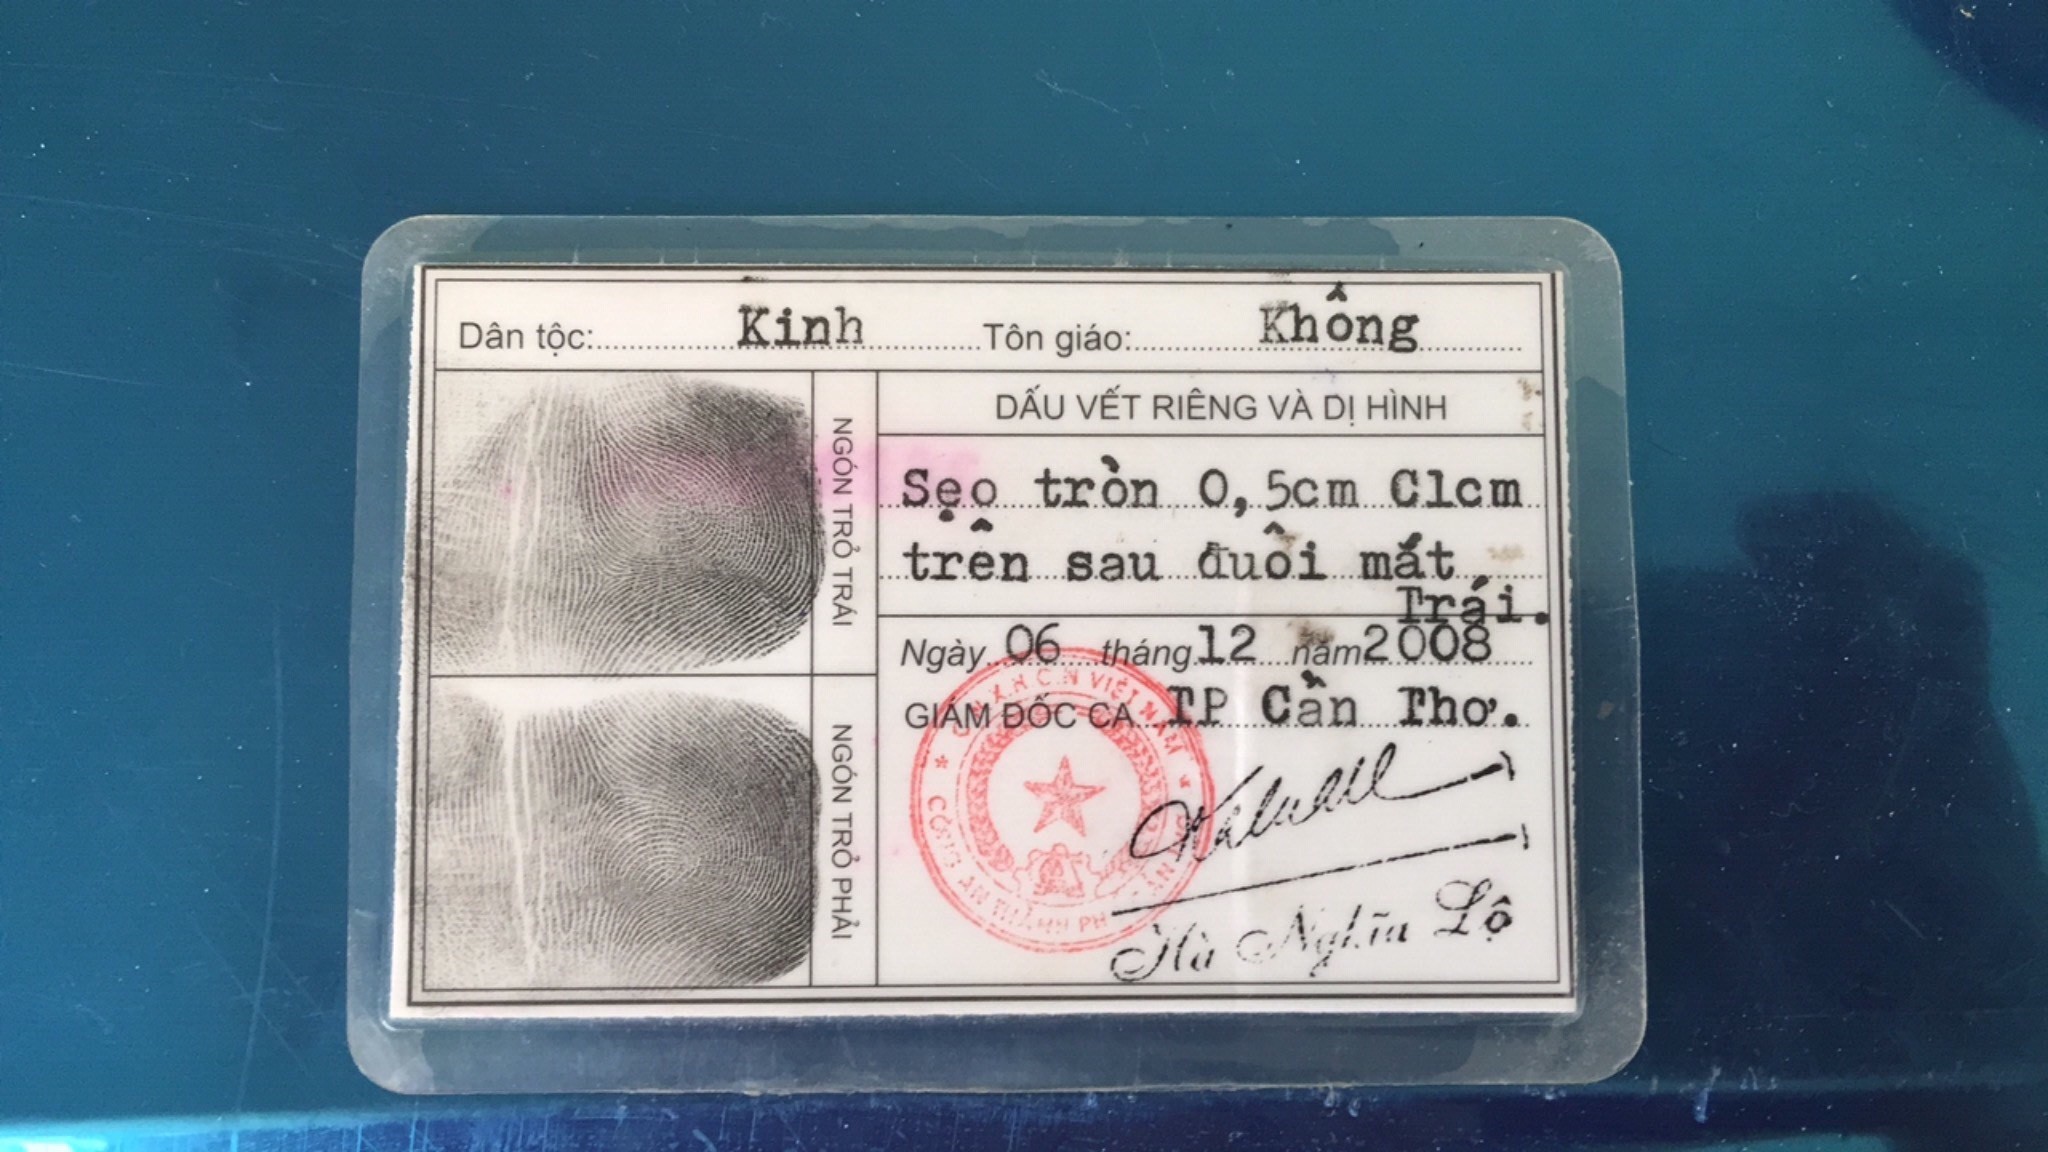 Dân tộc: Kinh Tôn giáo: Không
NGÓN TRỎ TRÁI
DẤU VẾT RIÊNG VÀ DỊ HÌNH
Sẹo tròn 0,5cm C1cm
trên sau đuôi mắt
Trái.
Ngày 06 tháng 12 năm 2008
GIÁM ĐỐC CA TP Cần Thơ.
NGÓN TRỎ PHẢI
X.H.C.N VIỆT NAM
CÔNG AN THÀNH PH
Hà Nghĩa Lộ